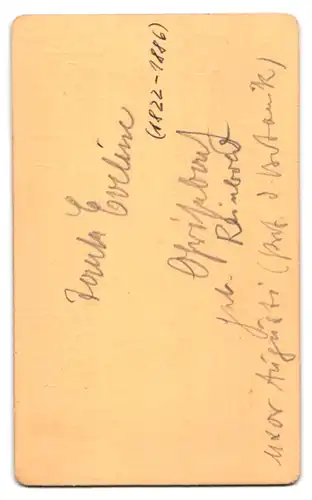 Tante Eveline
(1822–1886)
Grisebach
geb. Reinbold
uxor Augusti (Prof. d. Botanik)